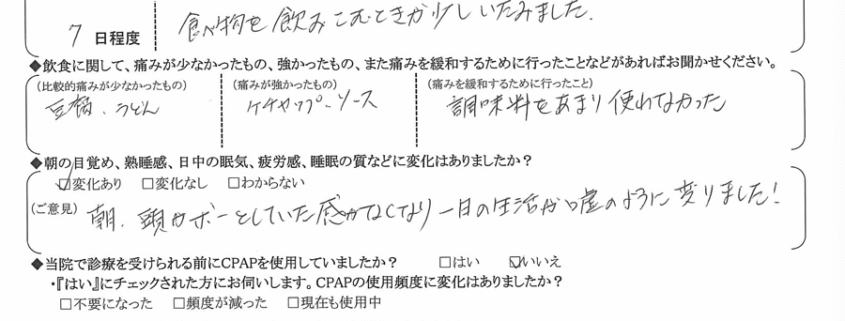 7 日程度 食べ物を飲みこむときが少しいたみました.
◆飲食に関して、痛みが少なかったもの、強かったもの、また痛みを緩和するために行ったことなどがあればお聞かせください。
(比較的痛みが少なかったもの) (痛みが強かったもの) (痛みを緩和するために行ったこと)
豆腐、うどん ケチャップ、ソース 調味料をあまり使わなかった
◆朝の目覚め、熟睡感、日中の眠気、疲労感、睡眠の質などに変化はありましたか?
☑変化あり □変化なし □わからない
(ご意見) 朝、頭がボーとしていた感がなくなり一日の生活が嘘のように変りました!
◆当院で診療を受けられる前にCPAPを使用していましたか? □はい ☑いいえ
・『はい』にチェックされた方にお伺いします。CPAPの使用頻度に変化はありましたか?
□不要になった □頻度が減った □現在も使用中